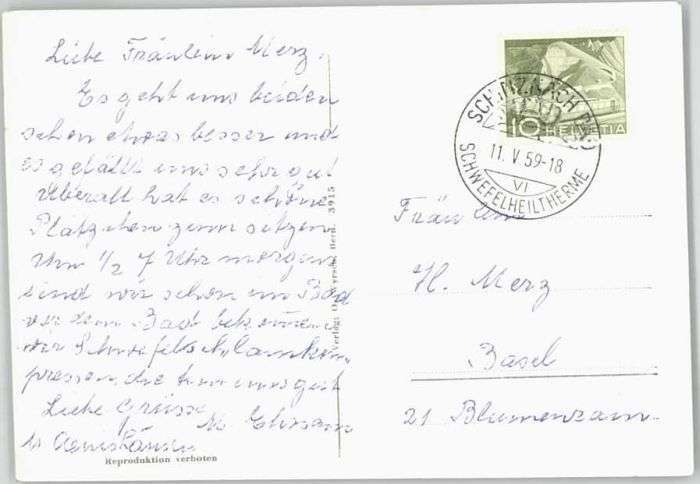 Liebe Fräulein Merz,
Es geht uns beiden
schon etwas besser und
es gefällt uns sehr gut
Überall hat es schöne
Plätzchen zum sitzen
Um 1/2 7 Uhr morgens
sind wir schon im Bad
vor dem Bad bekommen
wir Schwefelschlamkom
pressen, die tun uns gut
Liebe Grüsse
M.
Reproduktion verboten
Verlag: Bern. 3915
10 HELVETIA
SCHINZNACH BAD
11. V 59-18
VI
SCHWEFELHEILTHERME
Fräulein
H. Merz
Basel
21 Blumenrain